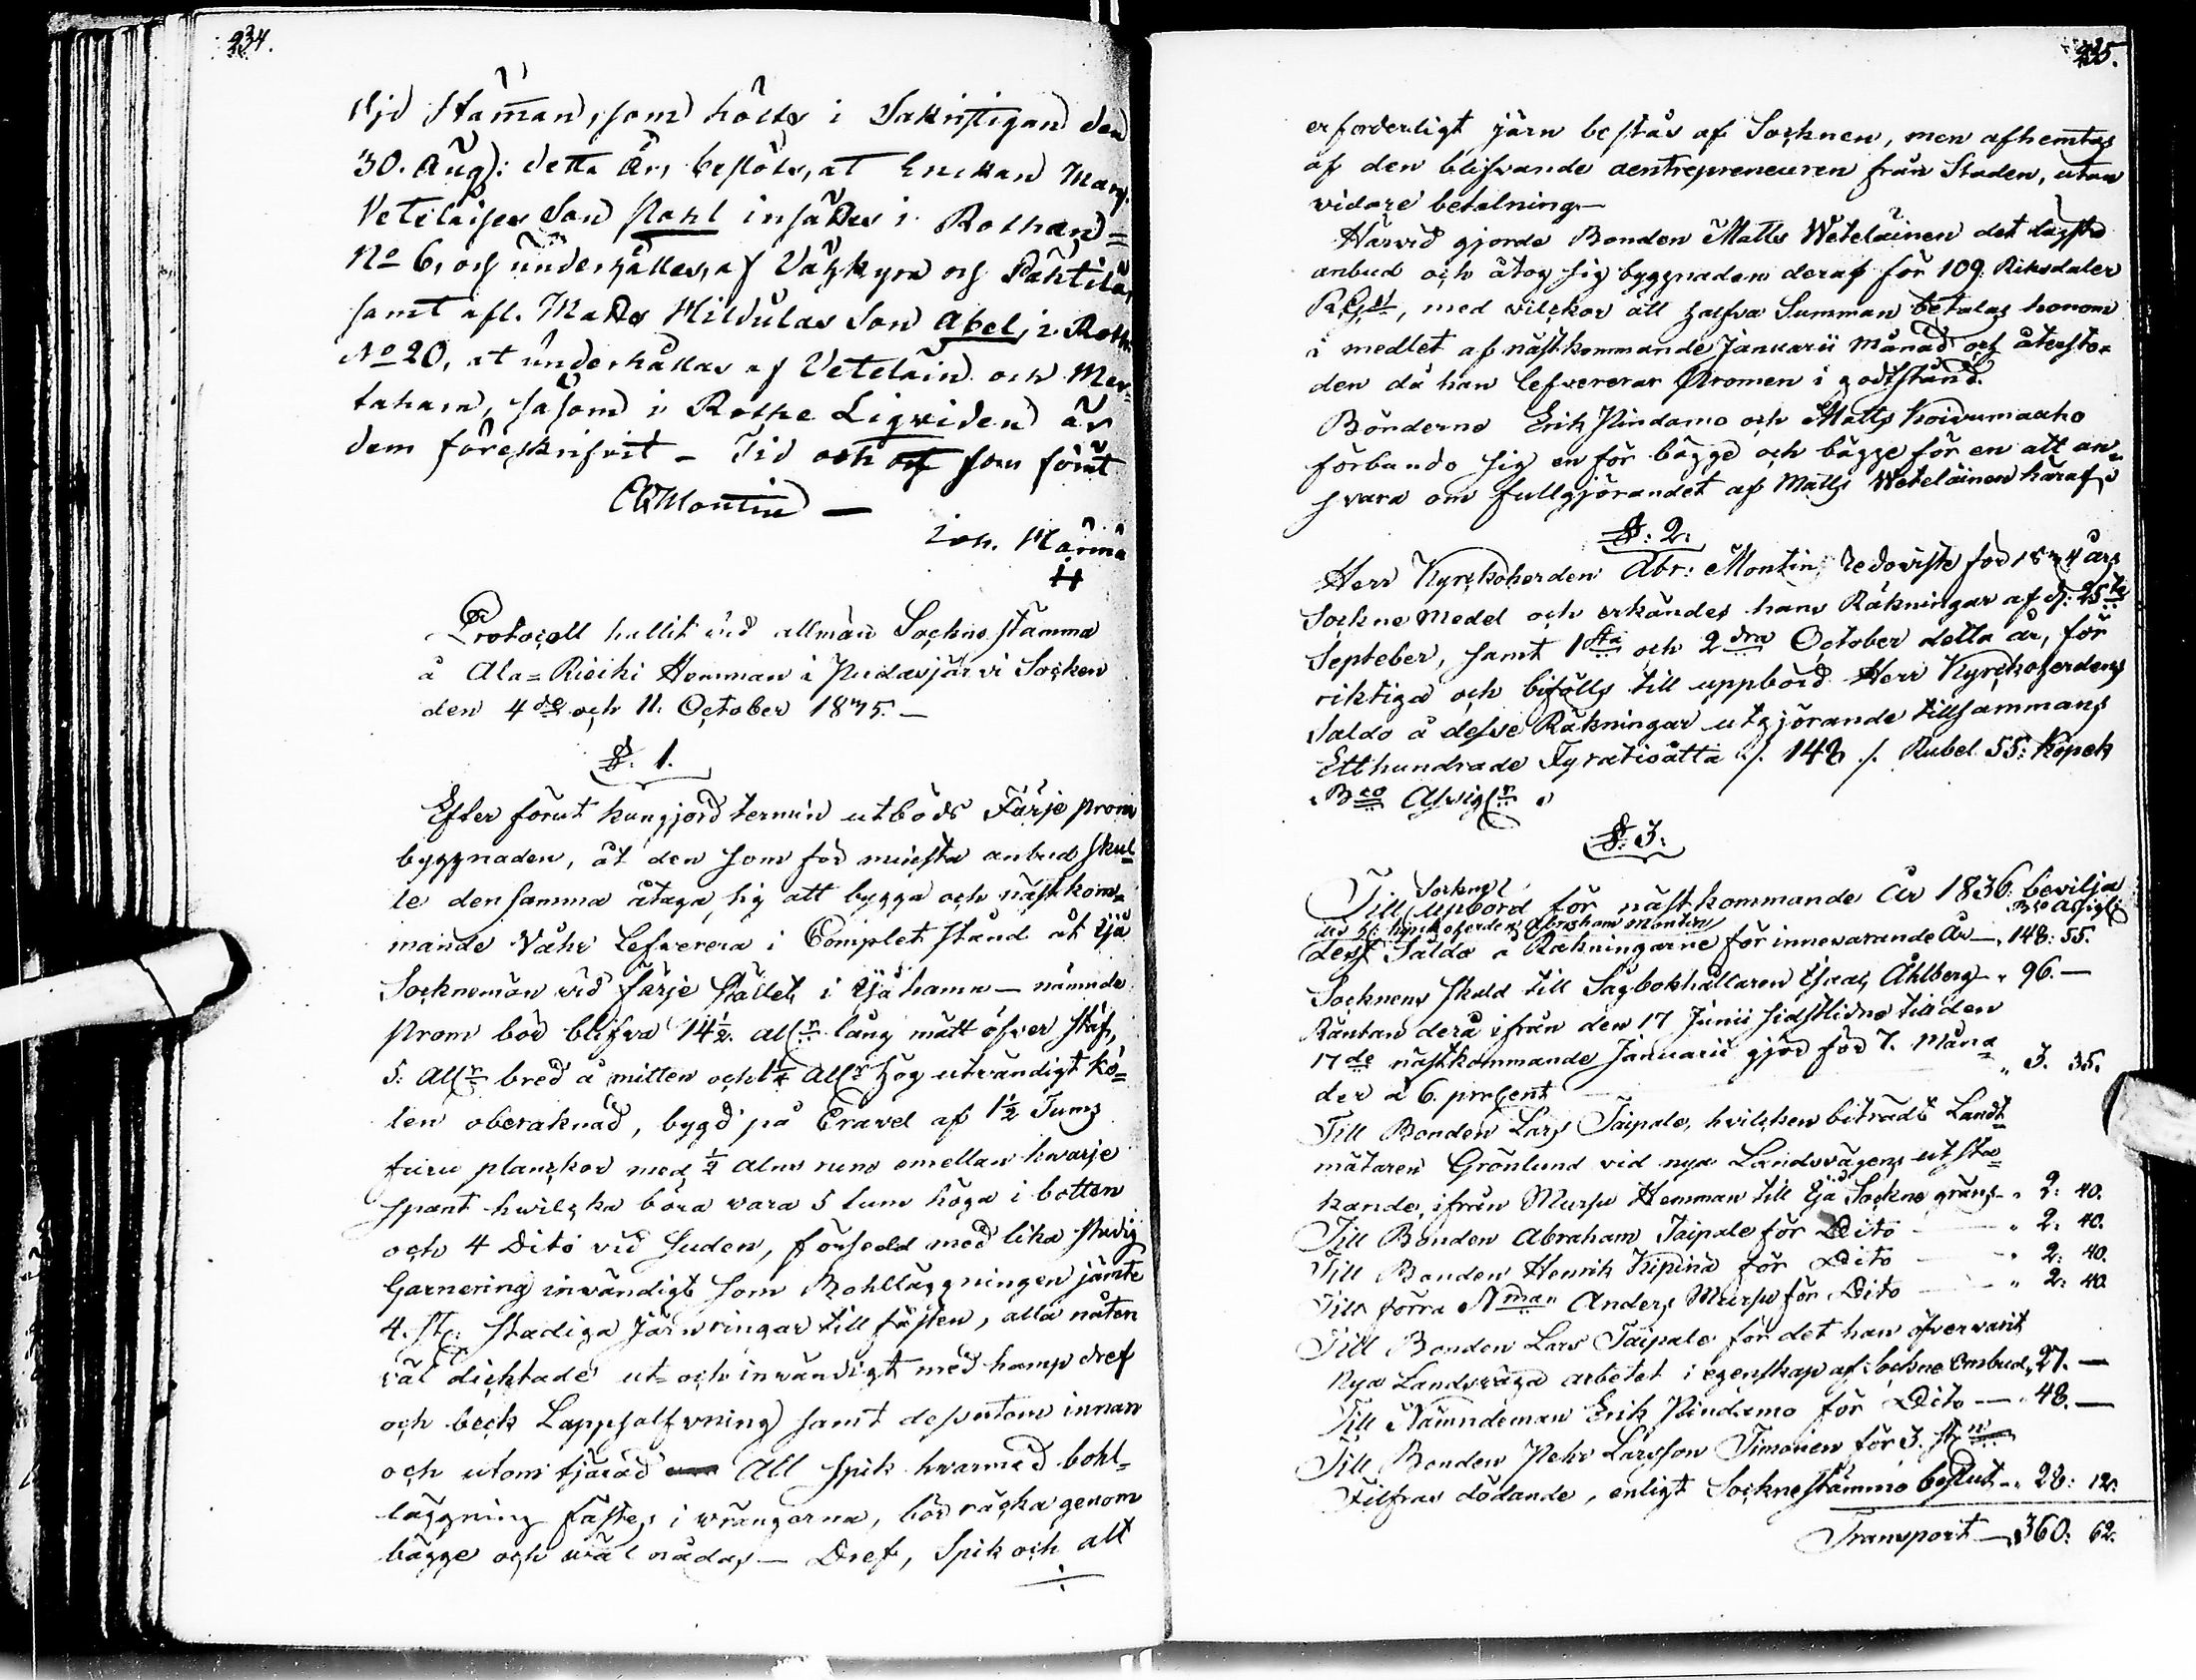 234.
Vid Stäman, som hölts i Sakristigan den
30. Aug: detta År, beslöts, at Enckan Marg.
Vetiläises Son Pahl insättes i Rothen=
No 6, och underhålles, af Vätzkyrö och Pähtilä,
samt afl. Matts Hildulas Son Abel, i Rothe
No 20, at underhållas af Vetelain och Mer-
tahara, såsom i Rothe Liqviden är
dem föreskrifvit – Tid och ort som förut
AMontin —
Joh. Märmä
Protocoll hållit vid allmän Sockne stämma
å Ala=Rieiki Hemman i Pudasjärvi Socken
den 4de och 11. October 1835. —
§. 1.
Efter förut kungjord termin utböds Färje prom
byggnaden, åt den som för minsta anbud skul-
le densamma åtaga sig att bygga och nästkom-
mande Vahr Lefverera i Complet stånd åt Ijå
Socknemän vid färje stället i Ijå hamn — nämnde
Prom bör blifva 14½. Alnr lång mått öfver stäf,
5: Alnr bred å mitten och 1¼ Alnr hög utvändigt kö=
len oberäknad, bygd på Cravel af 1½ Tums
furu planckor med ½ Alns rum emellan hwarje
spant hwilcka böra vara 5 tum höga i botten
och 4 Dito vid suden, försedd med lika stadig
Garnering invändigt som Bohlläggningen jämte
4. st: stadiga Järnringar till fästen, alla nåten
väl dicktade ut- och invändigt med hamp dref
och beck Lappsalfvning samt desutom innan
och utom tjärad All spik hvarmed bohl-
läggning fästes i wrängerna, bör räcka genom
bägge och wäl nådas — Dref, Spik och alt
235.
erforderligt järn bestås af Socknen, men afhemtas
af den blifvande aentrepreneuren från Staden, utan
vidare betalning —
Härvid gjorde Bonden Matts Wetelainen det lägsta
anbud och åtog sig byggnaden deraf för 109. Riksdaler
RGs, med vilckor att halfva Summan betalas honom
i medlet af nästkommande Januarii månad och återsto-
den då han lefvererar Promen i godt stånd.
Bönderne Erik Pindamo och Matts Koivumaaho
förbundo sig en för bägge och bägge för en att an-
svara om fullgjörandet af Matts Wetelainen häraf
§. 2.
Herr Kyrckoherden Abr: Montin redoviste för 1834 års
Sockne Medel och erkändes hans Räkningar af d: 25te
Septeber, samt 1sta och 2dra October detta år, för
riktiga och bifölls till uppbörd Herr Kyrckoherdens
Saldo å desse Räkningar utgjörande tillsammans
Etthundrade Fyratioåtta /. 148 /. Rubel 55: Kopek
Bco Assigr
§. 3.
Sockne
Till Upbörd för nästkommande År 1836. bevilja
des H: Kyrckoherden Abraham Montin Bco Assigr
dess Saldo å Räkningarne för innevarande År —, 148: 55.
Socknens skuld till Sågbokhållaren Isaac Åhlberg „ 96. —
Räntan derå ifrån den 17 Junii sistlidne till den
17de nästkommande Januarii gjör för 7. Måna
der à 6. prosent „ 3. 35.
Till Bonden Lars Taipale, hvilcken biträdt Landt
mätaren Grönlund vid nya Landsvägens utsta=
kande, ifrån Mursu Hemman till Ijå Sockne gräns „ 2: 40.
Till Bonden Abraham Taipale för Dito „ 2: 40.
Till Bonden Henrik Kipinä för Dito „ 2: 40.
Till förra Nman Anders Mursu för Dito „ 2: 40.
Till Bonden Lars Taipale för det han öfvervarit
Nya Landsväga arbetet i egenskap af Sockne Ombud, 27. —
Till Nämndeman Erik Pindamo för Dito — 48. —
Till Bonden Pehr Larsson Timonen för 3. st
Filfras dödande, enligt Sockne stämmo beslut „ 28: 12.
Transport — 360: 62.